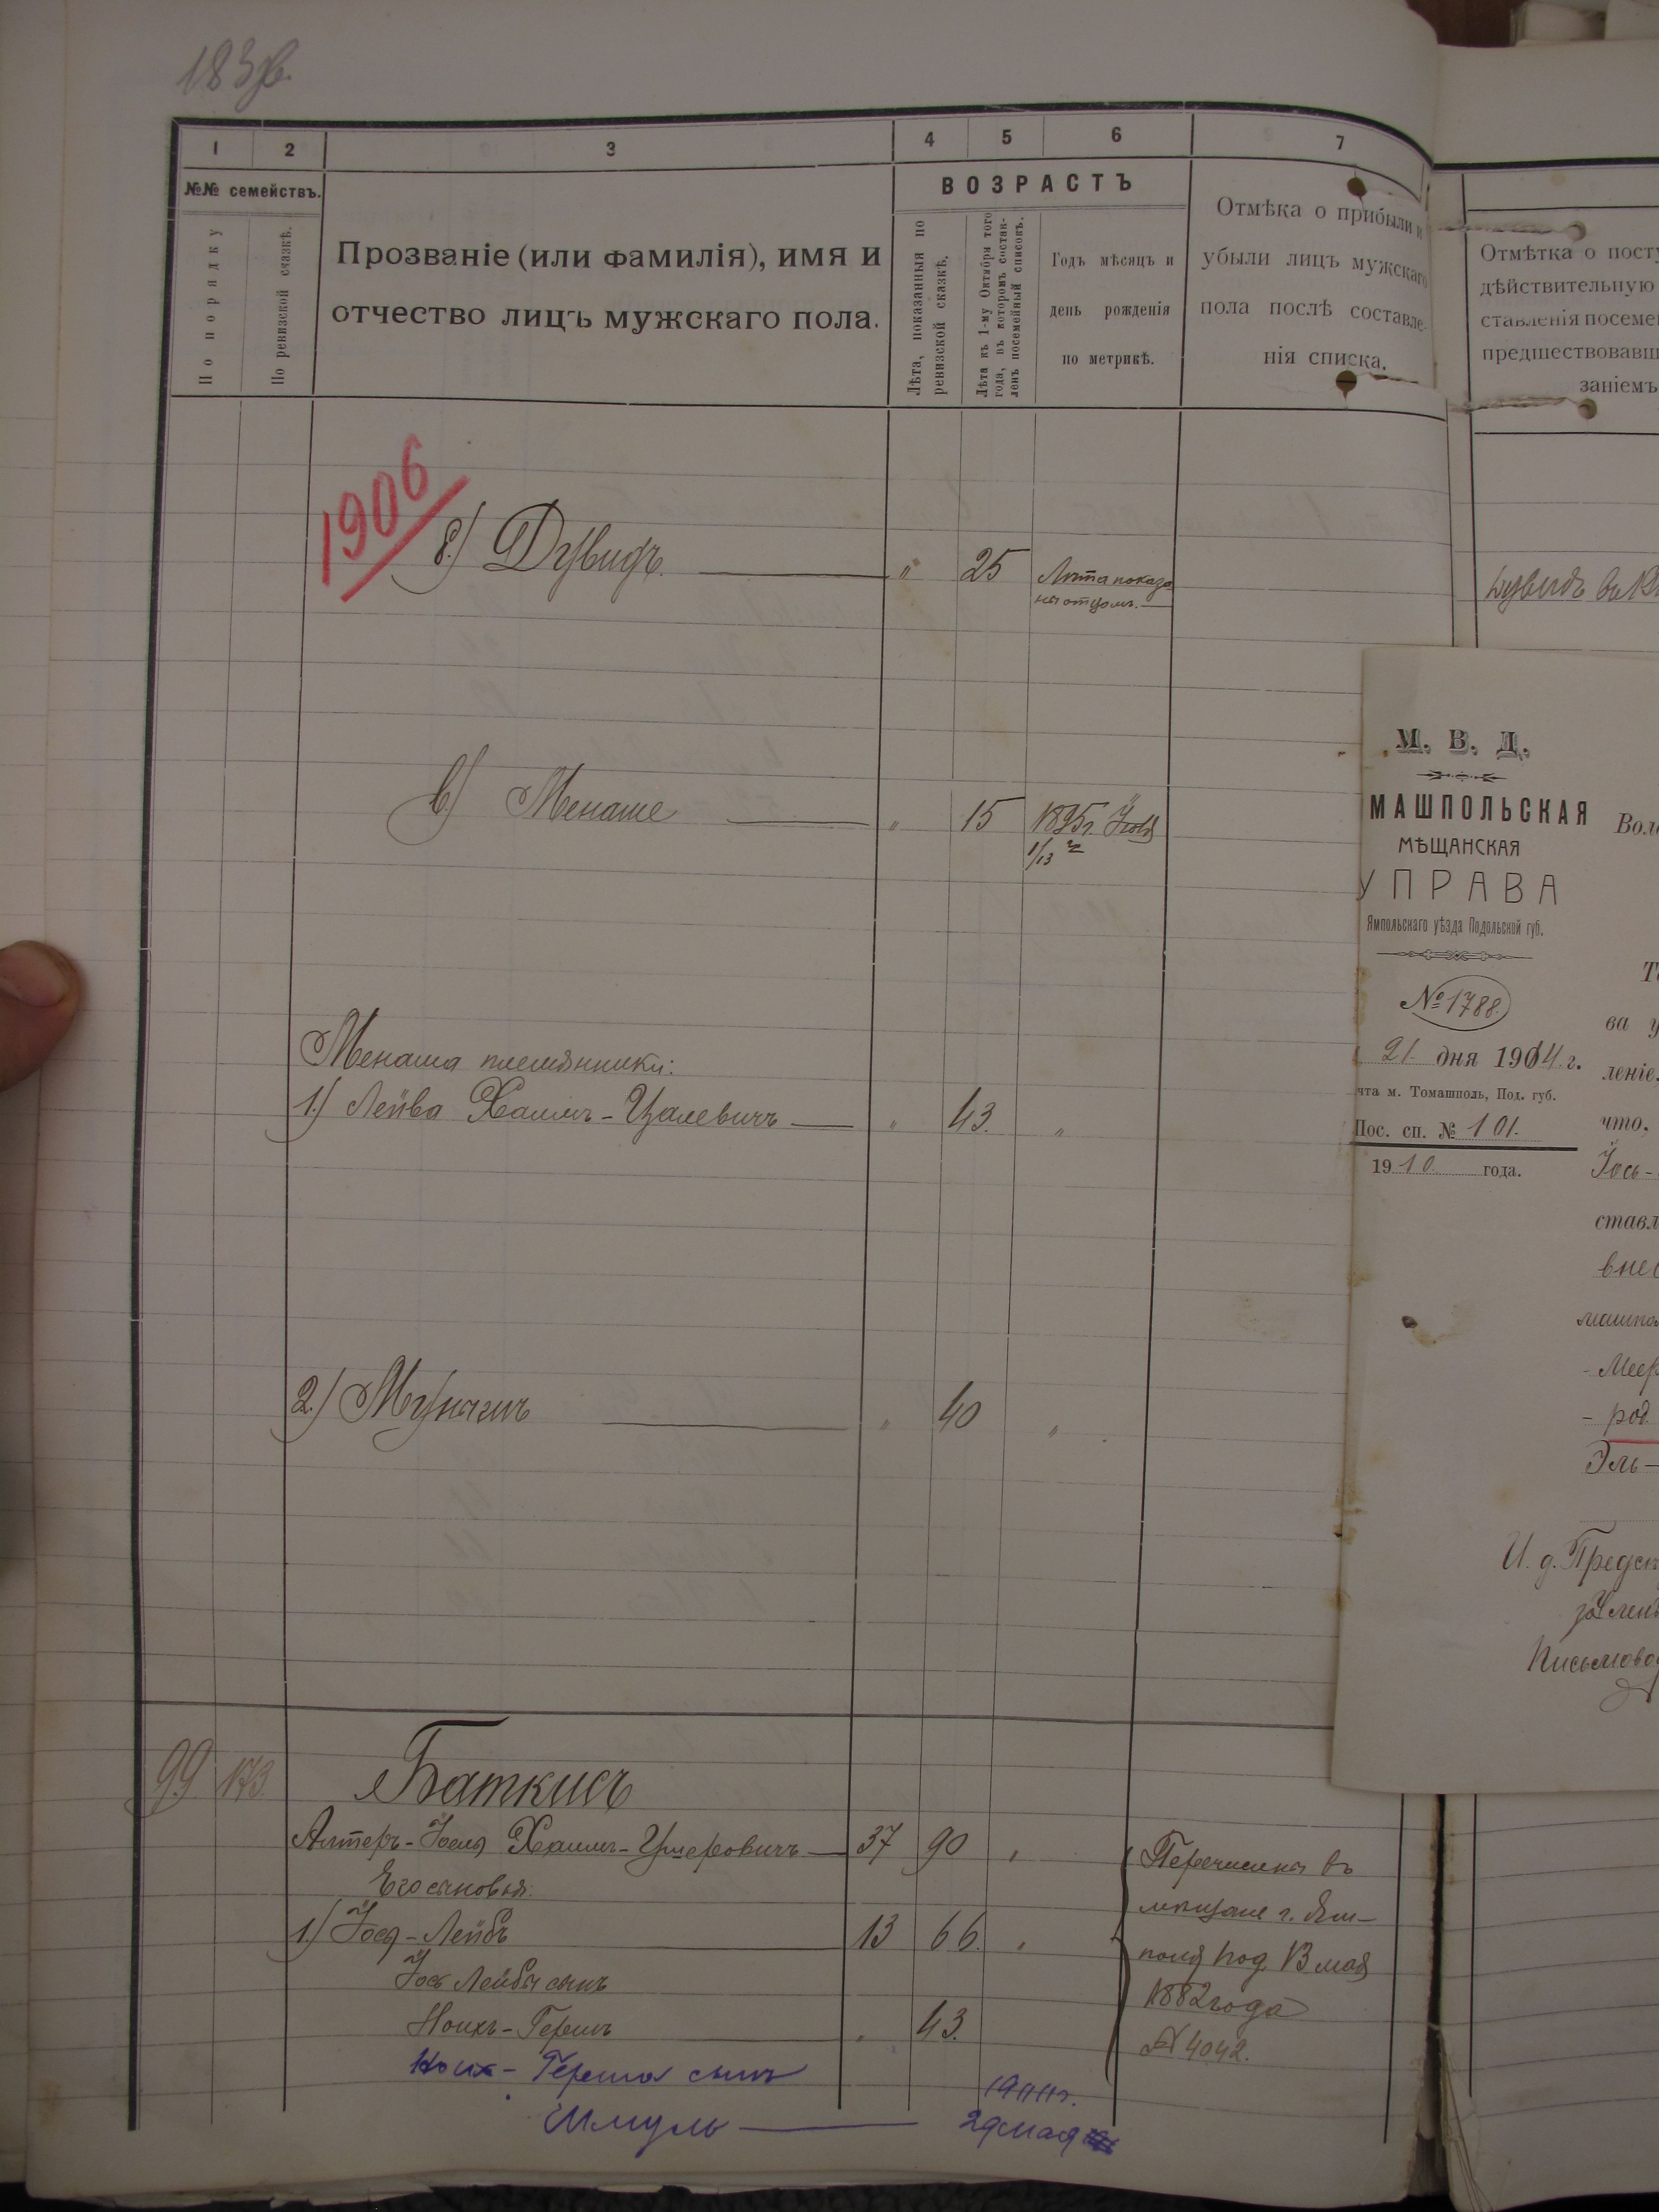 183 об.
1 2 3 4 5 6 7
№№ семействъ.
По порядку
По ревизской сказкѣ.
Прозваніе (или фамилія), имя и
отчество лицъ мужскаго пола.
ВОЗРАСТЪ
Лѣта, показанныя по
ревизской сказкѣ.
Лѣта къ 1-му Октября того
года, въ которомъ состав-
ленъ посемейный списокъ.
Годъ мѣсяцъ и
день рожденія
по метрикѣ.
Отмѣка о прибыли и
убыли лицъ мужскаго
пола послѣ составле-
нія списка.
1906
б.) Дувидъ. " 25 Лѣта показа
ны отцомъ.
в) Менаше " 15 1895 г. Іюля
1/13
Менаша племянники:
1.) Лейба Хаимъ-Цалевичъ " 43. "
2.) Мунышъ " 40 "
99. 173. Баткисъ
Алтеръ-Іосія Хаимъ-Умеровичъ 37 90 "
Его сыновья:
1.) Іося-Лейбъ 13 66. "
Іось Лейбы сынъ
Ноихъ-Гершъ " 43.
Ноих-Герша сынъ
Шмуль
1911 г.
29 мая
Перечислены въ
мѣщане г. Ям-
поля под. 13 мая
1882 года
№ 4042.
Отмѣтка о посту
дѣйствительную
ставленія посеме
предшествовавш
заніемъ
Дувидъ въ 19
М. В. Д.
МАШПОЛЬСКАЯ
МѢЩАНСКАЯ
УПРАВА
Ямпольскаго уѣзда Подольской губ.
№ 1788.
21 дня 1914 г.
чта м. Томашполь, Под. губ.
Пос. сп. № 101.
1910 года.
Вол
ва у
леніе.
что.
Іось-
ставл
внес
машпо
- Меер
- род.
Эль-
И. д. Предс
Письмово